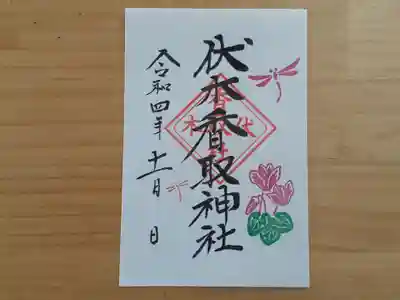 伏木香取神社
令和四年十一月 日